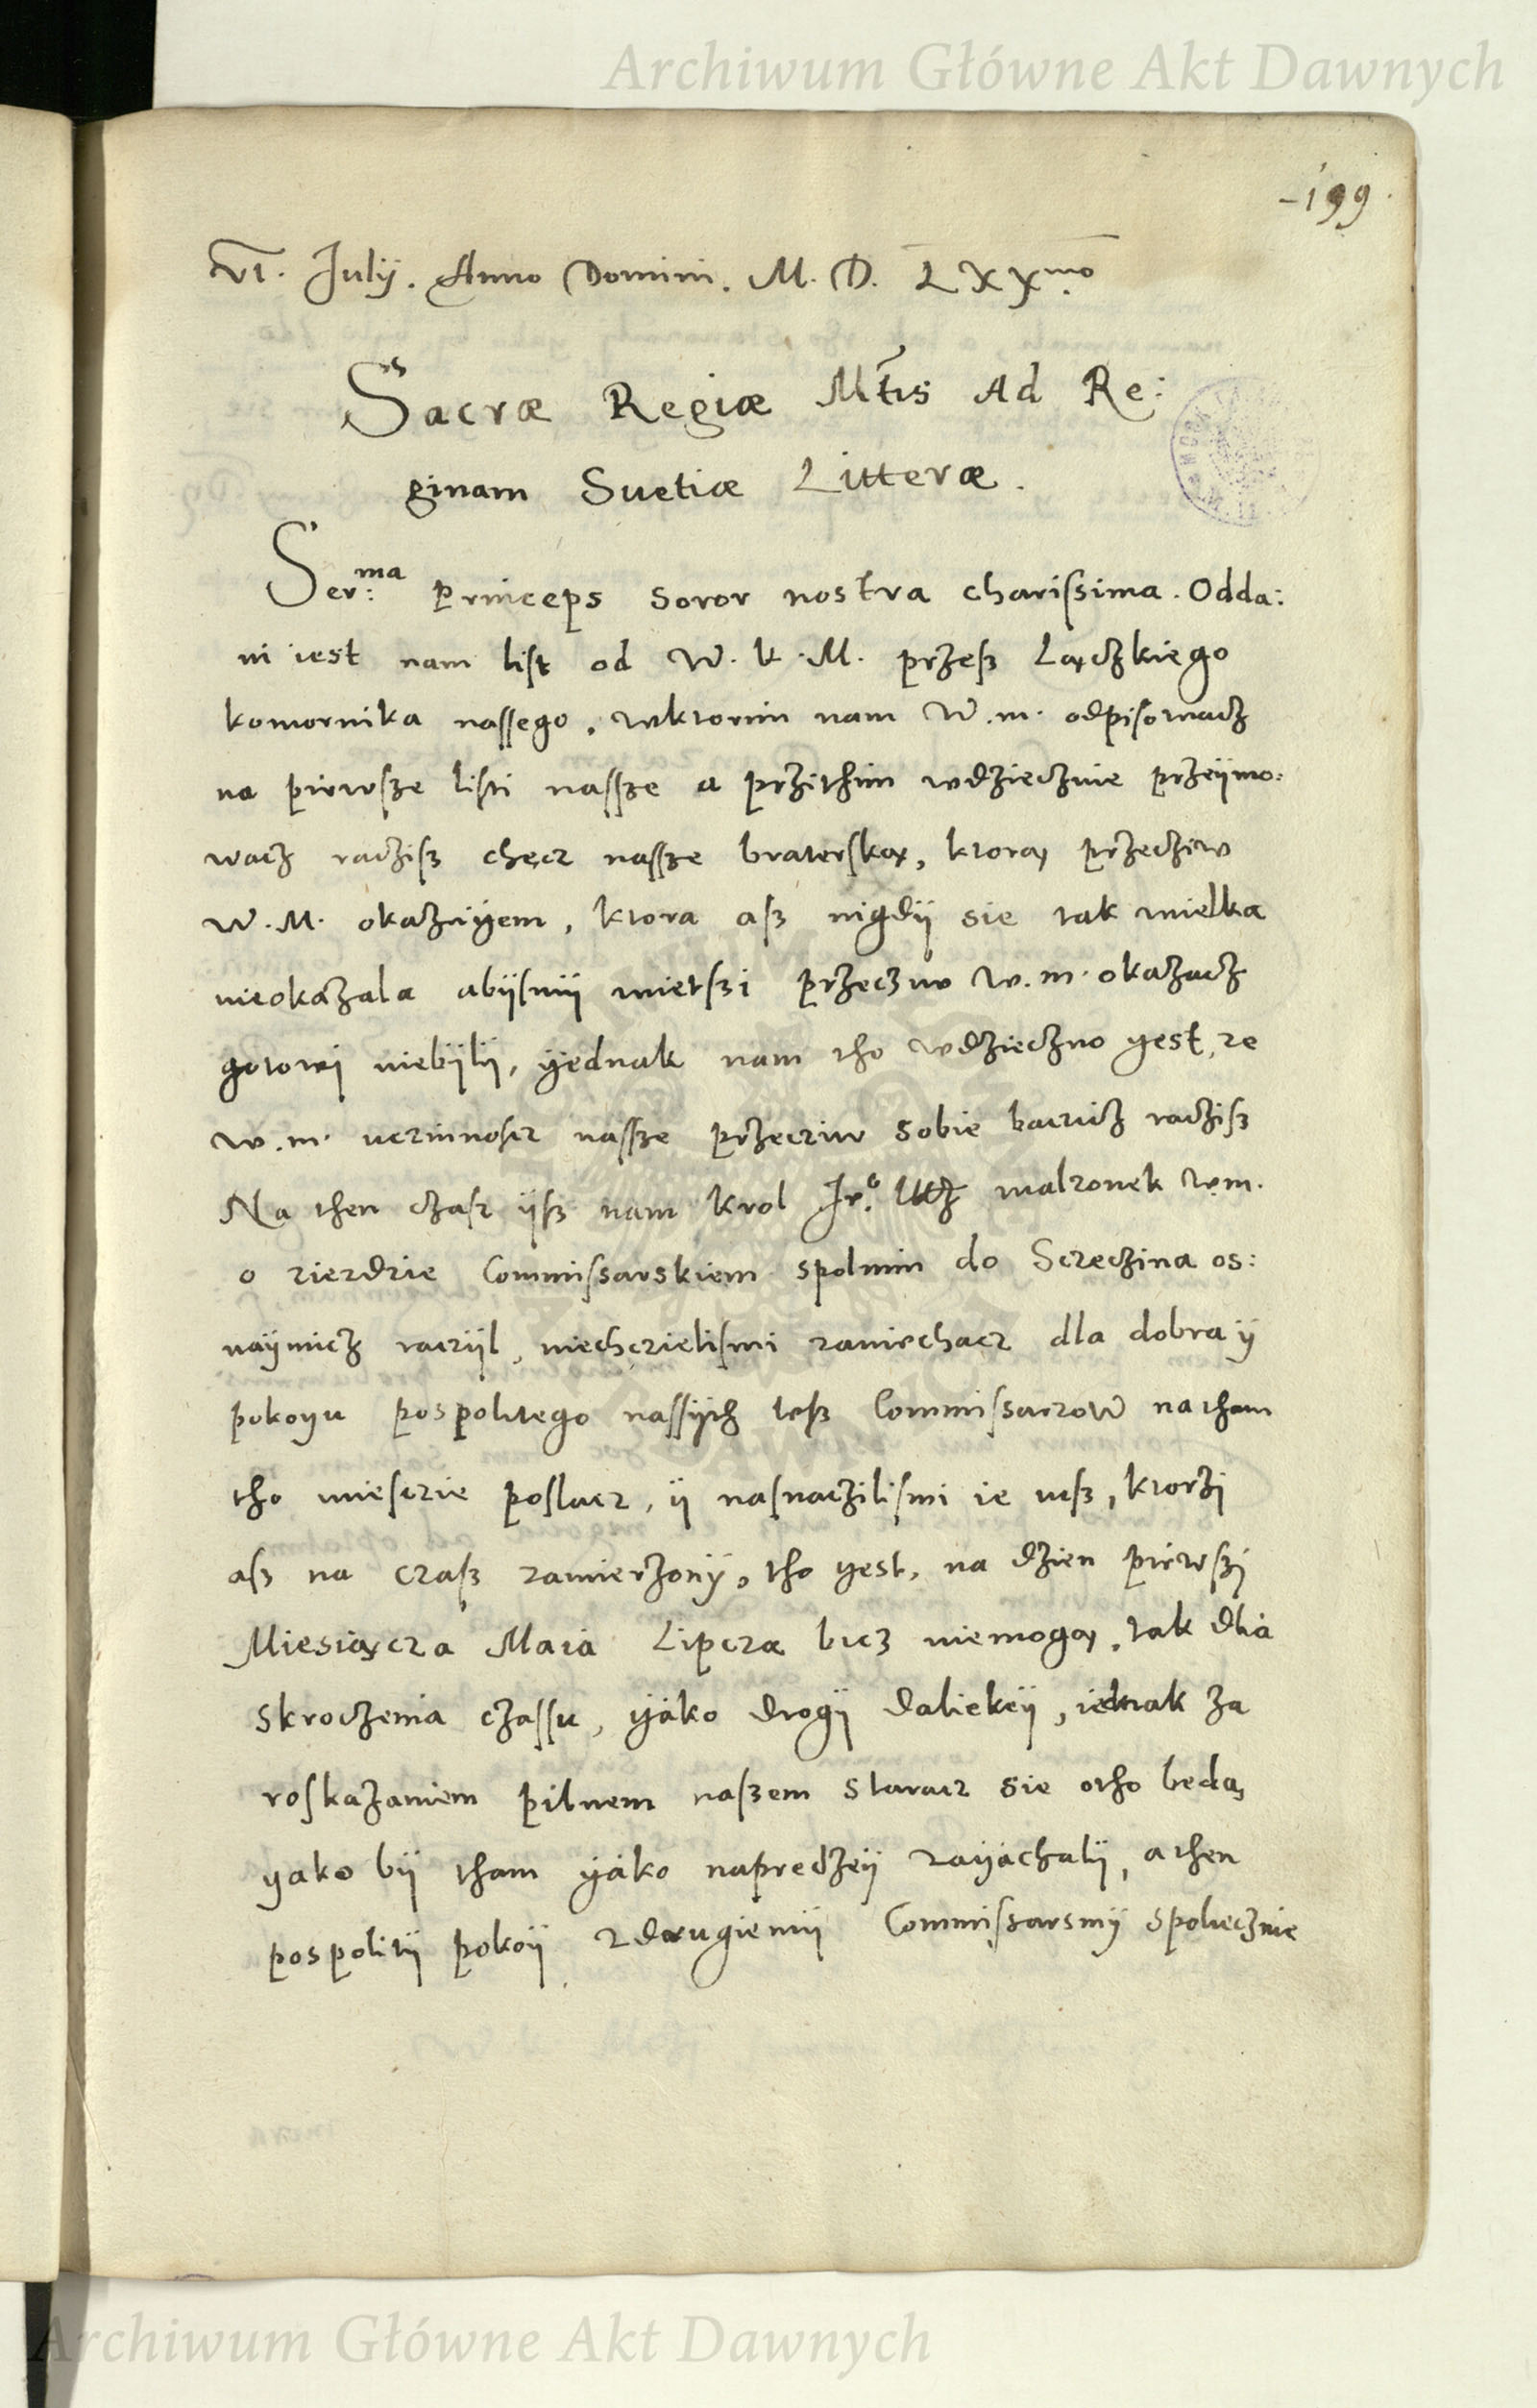 Archiwum Główne Akt Dawnych
199
VI. Julij. Anno Domini. M. D. LXXmo
Sacræ Regiæ Mtis Ad Re:
ginam Suetiæ Litteræ.
Ser:ma princeps soror nostra charissima. Odda:
ni iest nam list od W. K. M. przeß Lączkiego
komornika nassego, wktorim nam W. m. odpisowacz
na pirwsze listi nassze a przithim wdziecznie przeijmo:
wacz raczisz chęcz nassze braterską, ktorą przecziw
W. M. okazuijem, ktora aß nigdij sie tak wielka
nieokazala abijsmij wietszi przecziw w. m. okazacz
gotowi niebijli, ijednak nam tho wdzieczno yest, ze
w. m. uczinnoscz nassze przeciw sobie baczicz raczisz
Na then czasz ijsz nam krol Je° malzonek w. m.
o ziezdzie Commissarskiem spolnim do Sczeczina os:
naijmicz raczijl, niechczielismi zaniechacz dla dobra ij
pokoyu pospolitego nassijch tesz Commissarzow na tham
tho miesczie poslacz, ij nasnaczilismi ie usz, ktorzi
aß na czaß zamierzonij, tho yest, na dzien pirwszi
Miesiącza Maia Lipcza bicz niemogą, tak dlia
skroczenia czassu, ijako drogij daliekij, iednak za
roskazaniem pilnem naszem staracz sie otho będą,
yako bij tham ijako napredzeij zaijachalij, a then
pospolitij pokoij zdrugiemij Commissarsmij spoliecznie
Archiwum Główne Akt Dawnych